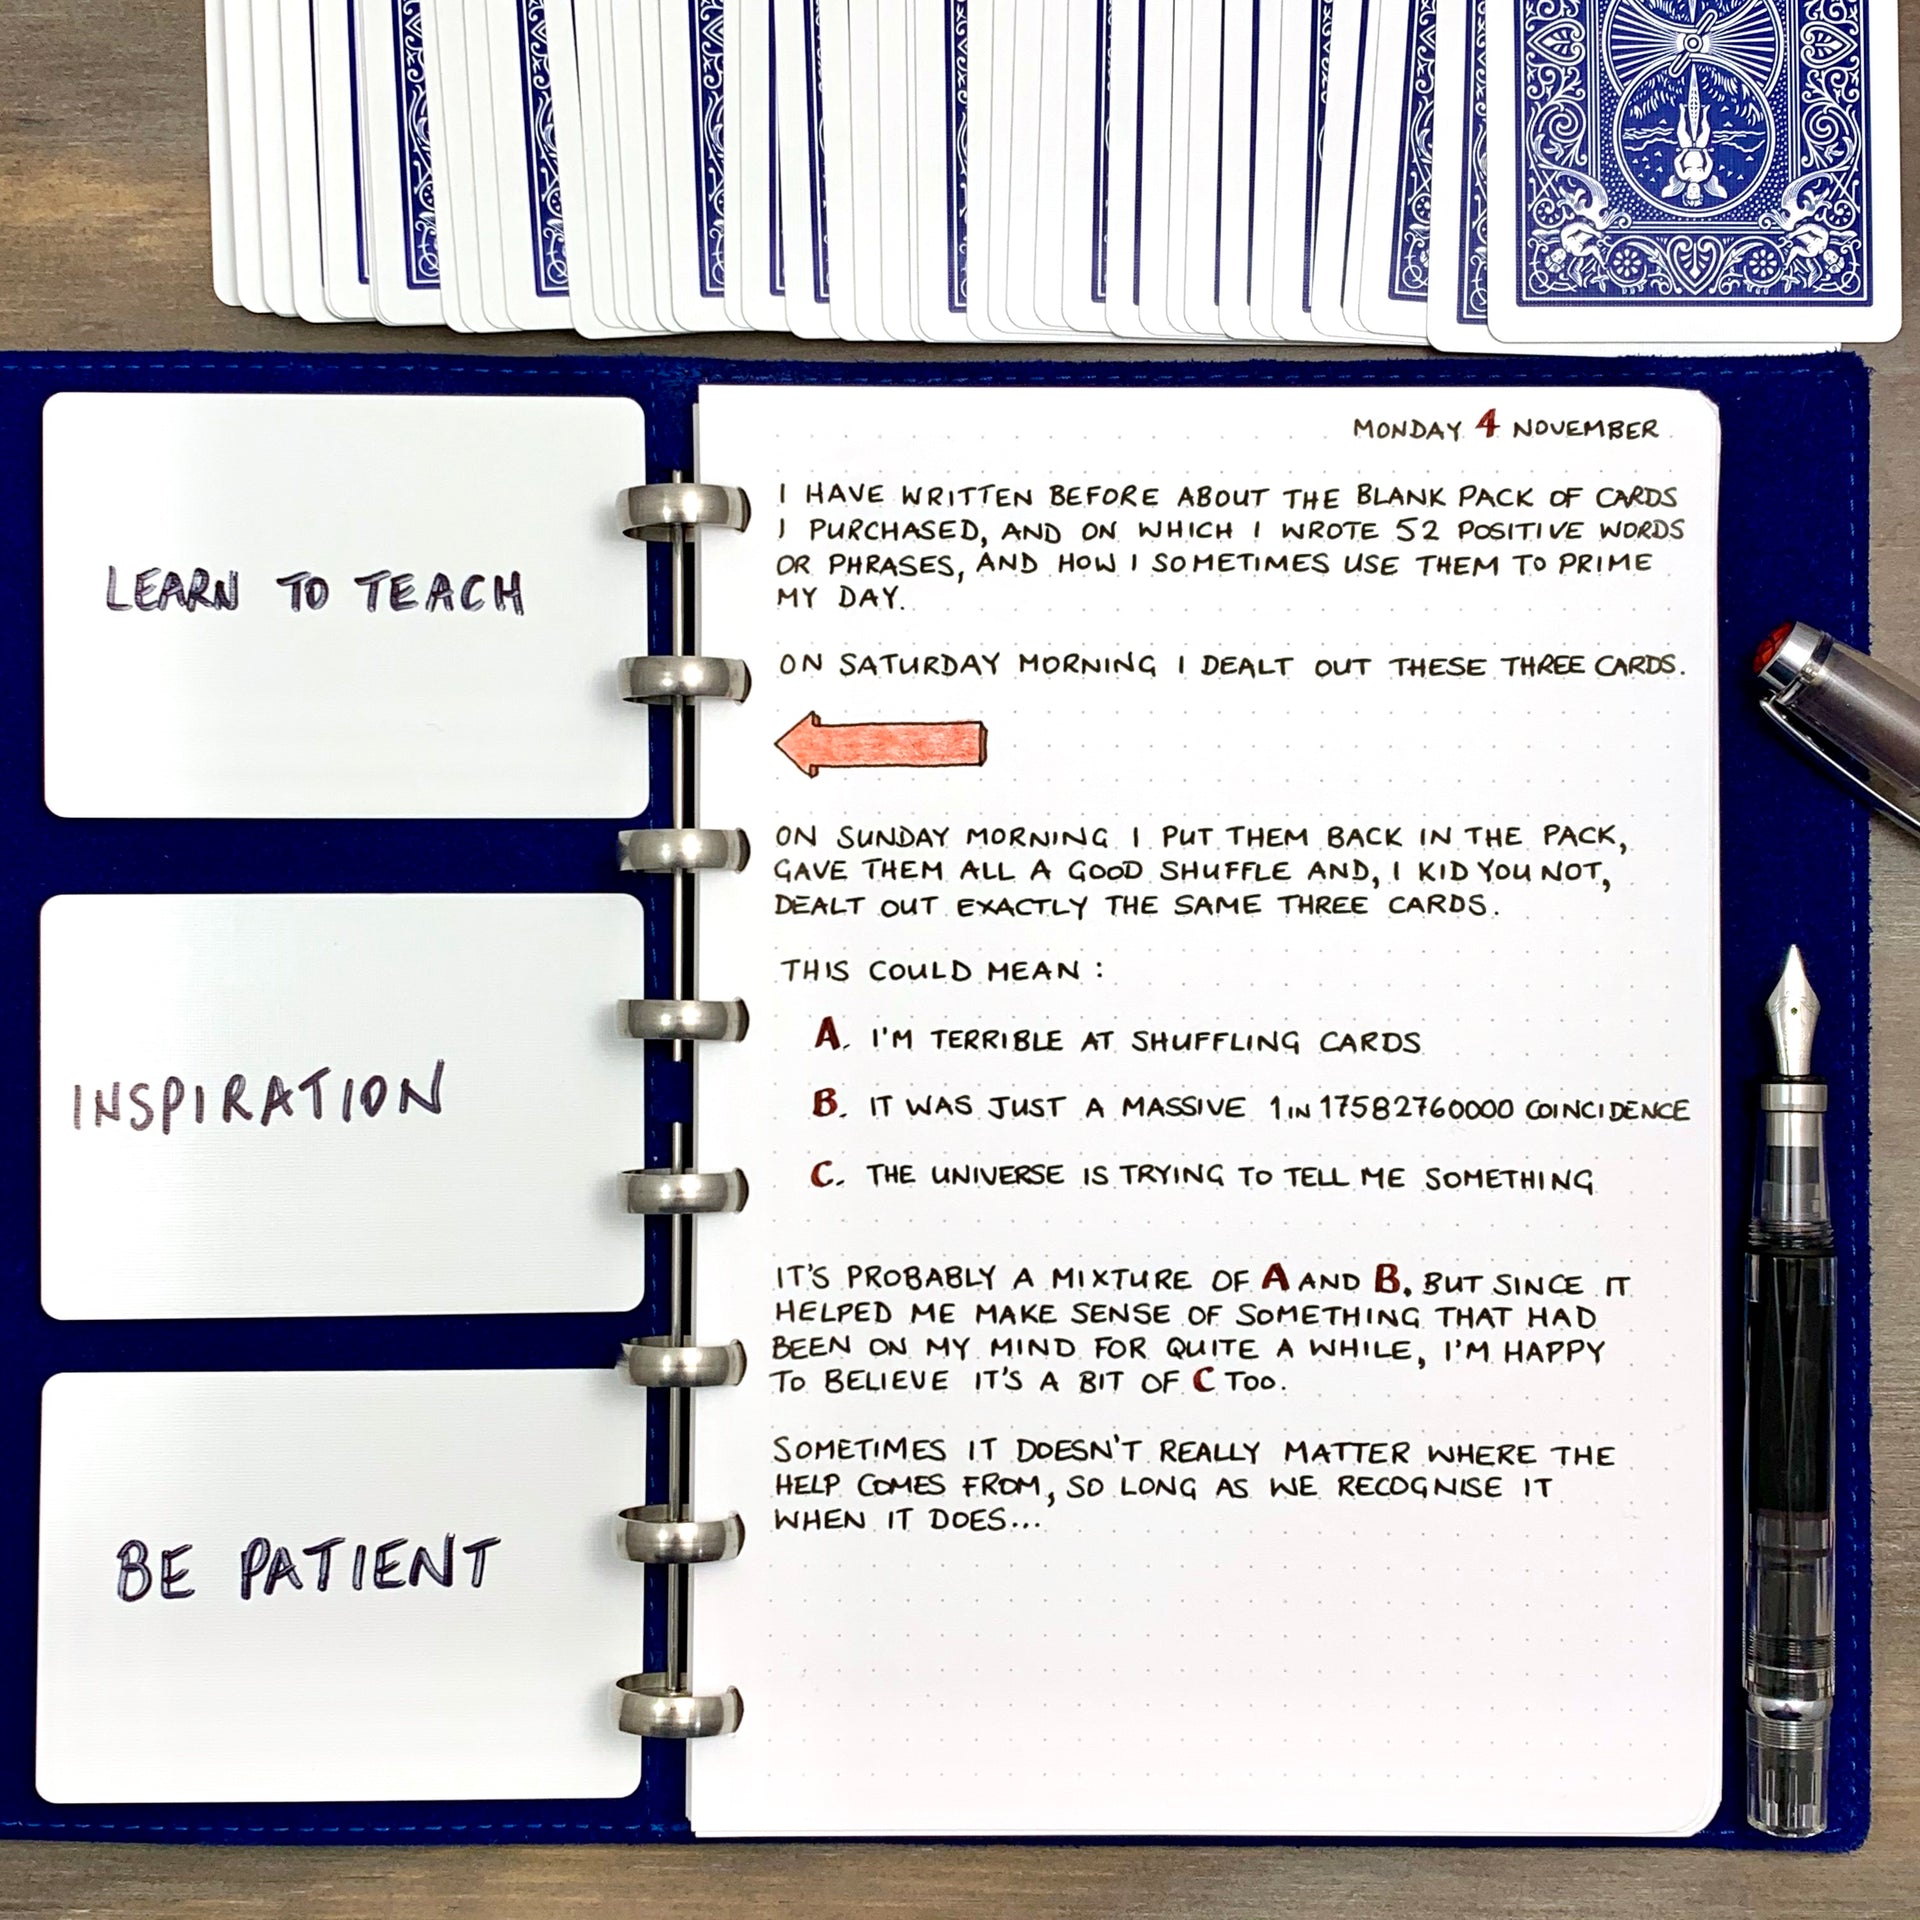 LEARN TO TEACH
INSPIRATION
BE PATIENT
MONDAY 4 NOVEMBER
I HAVE WRITTEN BEFORE ABOUT THE BLANK PACK OF CARDS
I PURCHASED, AND ON WHICH I WROTE 52 POSITIVE WORDS
OR PHRASES, AND HOW I SOMETIMES USE THEM TO PRIME
MY DAY.
ON SATURDAY MORNING I DEALT OUT THESE THREE CARDS.
ON SUNDAY MORNING I PUT THEM BACK IN THE PACK,
GAVE THEM ALL A GOOD SHUFFLE AND, I KID YOU NOT,
DEALT OUT EXACTLY THE SAME THREE CARDS.
THIS COULD MEAN :
A. I'M TERRIBLE AT SHUFFLING CARDS
B. IT WAS JUST A MASSIVE 1 IN 17582760000 COINCIDENCE
C. THE UNIVERSE IS TRYING TO TELL ME SOMETHING
IT'S PROBABLY A MIXTURE OF A AND B, BUT SINCE IT
HELPED ME MAKE SENSE OF SOMETHING THAT HAD
BEEN ON MY MIND FOR QUITE A WHILE, I'M HAPPY
TO BELIEVE IT'S A BIT OF C TOO.
SOMETIMES IT DOESN'T REALLY MATTER WHERE THE
HELP COMES FROM, SO LONG AS WE RECOGNISE IT
WHEN IT DOES...